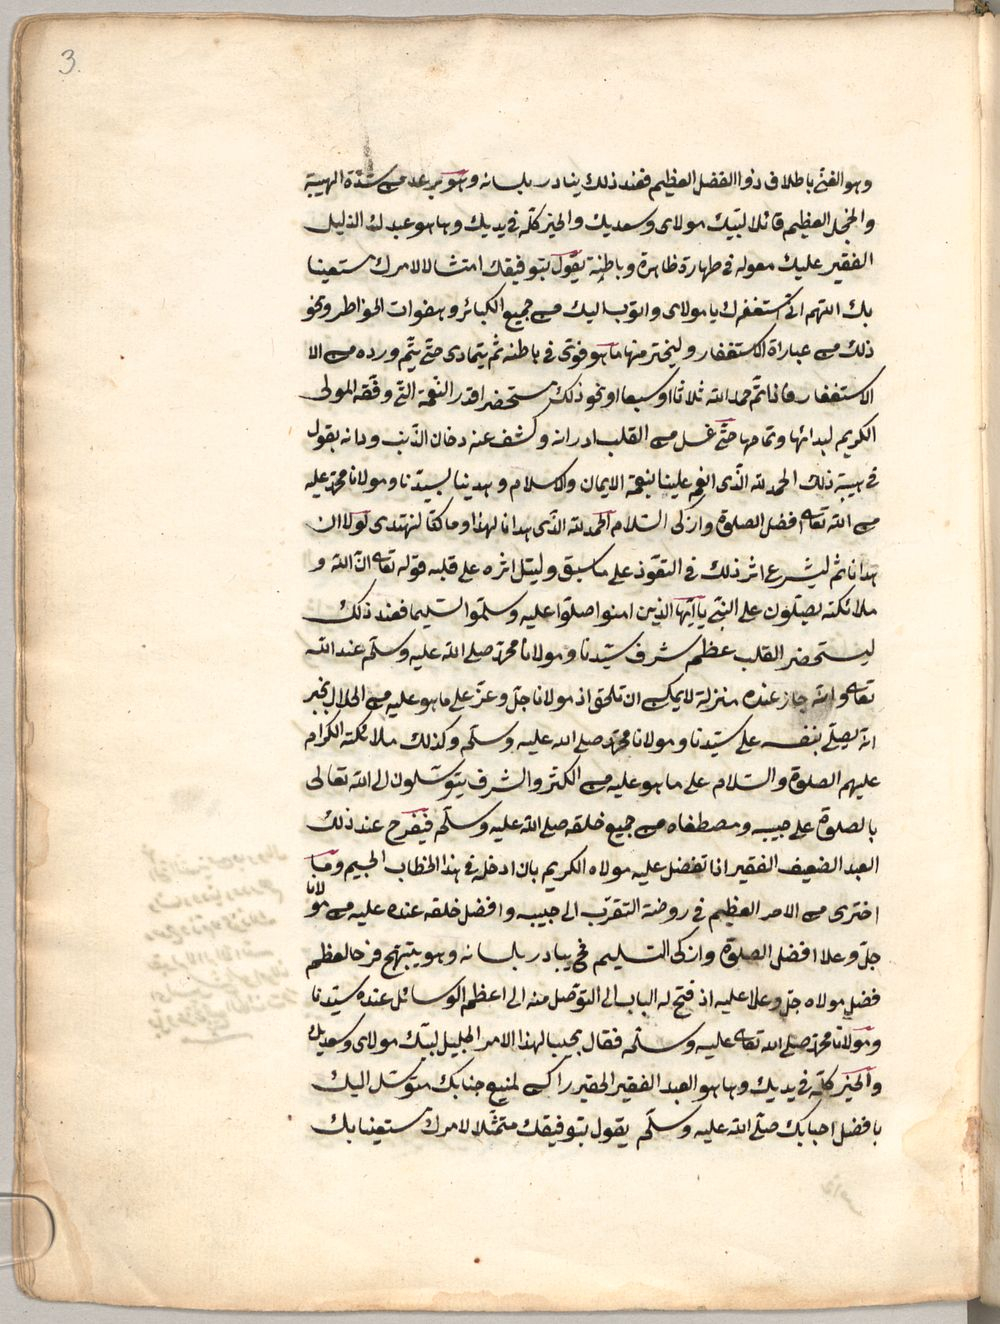 3.
وهو الغنى باطلاق ذوا الفضل العظيم فعند ذلك ينادر بلسانه وهو يرعد من شدة الهيبة
والخجل العظيم قائلا لبيك مولاى وسعديك والخير كله فى يديك وها هو عبدك الذليل
الفقير عليك معوله فى طهارة ظاهرة وباطنة يقول بتوفيقك امتثالا لامرك مستعينا
بك اللهم انى استغفرك يا مولاى واتوب اليك من جميع الكبائر وهفوات الخواطر ونحو
ذلك من عباراة الاستغفار وليختر منها ما هو قوى فى باطنه ثم يتمادى حتى يتم ورده من الا
الاستغفار فاذا تم حمد الله ثلاثا او سبعا او نحو ذلك مستحضرا قدر النعمة التى وفقه المولى
الكريم لبدائها وتمامها حتى غسل من القلب ادرانه وكشف عنه دخان الذنب ودانه يقول
فى هيبة ذلك الحمد لله الذى انعم علينا بنعمة الايمان والاسلام وهدينا لسيدنا ومولانا محمد عليه
من الله تعالى افضل الصلوة وازكى السلام الحمد لله الذى هدانا لهذا وما كنا لنهتدى لولا ان
هدانا ثم ليشرع اثر ذلك فى التعوذ على ما سبق وليتل اثره على قلبه قوله تعالى ان الله و
ملائكته يصلون على النبى يا ايها الذين امنوا صلوا عليه وسلموا تسليما فعند ذلك
ليستحضر القلب عظم شرف سيدنا ومولانا محمد صلى الله عليه وسلم عند الله
تعالى وانه جاز عنده منزلة لايمكن ان تلحق اذ مولانا جل وعز على ما هو عليه من الجلال يخبر
انه يصلى بنفسه على سيدنا ومولانا محمد صلى الله عليه وسلم وكذلك ملائكته الكرام
عليهم الصلوة والسلام على ما هو عليه من الكثر والشرف يتوسلون الى الله تعالى
بالصلوة على حبيبه ومصطفاه من جميع خلقه صلى الله عليه وسلم فيفرح عند ذلك
العبد الضعيف الفقير اذا تفضل عليه مولاه الكريم بان ادخله فى هذا الخطاب الجسيم وما
اخترى من الامر العظيم فى روضة التقرب الى حبيبه وافضل خلقه عنده عليه من مولانا
جل وعلا افضل الصلوة وازكى التسليم فح يبادر بلسانه وهو يبتهج فرحا لعظم
فضل مولاه جل وعلا عليه اذ فتح له الباب الى التوصل منه الى اعظم الوسائل عنده سيدنا
ومولانا محمد صلى الله تعالى عليه وسلم فقال مجيبا لهذا الامر الجليل لبيك مولاى وسعديك
والخير كله فى يديك وها هو العبد الفقير الحقير راكن لمنيع جنابك متوسل اليك
بافضل احبابك صلى الله عليه وسلم يقول بتوفيقك متمثلا لامرك مستعينا بك